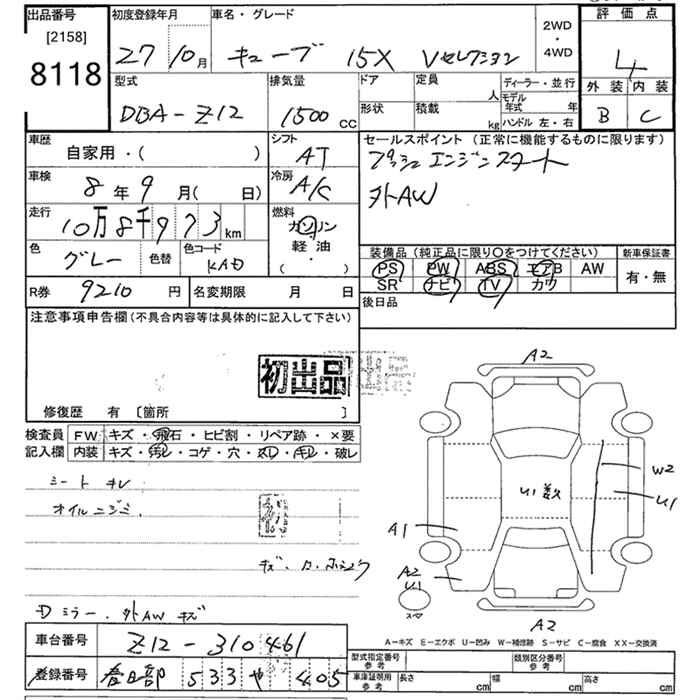 出品番号 初度登録年月 車名・グレード 2WD・4WD 評価点
[2158]
8118 27 10月 キューブ 15X Vセレクション 4
型式 排気量 ドア 定員 人 ディーラー・並行 外装 内装
DBA-Z12 1500 CC 形状 積載 kg モデル年式 年 ハンドル 左・右 B C
車歴 自家用・( ) シフト AT セールスポイント (正常に機能するものに限ります)
プッシュエンジンスタート
車検 8年 9月 ( 日) 冷房 A/C 外AW
走行 10万8千973 km 燃料 ガソリン 軽油 ・( )
色 グレー 色替 色コード KAD 装備品 (純正品に限り○をつけてください) 新車保証書
PS PW ABS エアB AW 有・無
R券 9210 円 名変期限 月 日 SR ナビ TV カワ
後日品
注意事項申告欄 (不具合内容等は具体的に記入して下さい)
初出品
修復歴 有 〔箇所 〕
検査員 FW キズ・飛石・ヒビ割・リペア跡・×要
記入欄 内装 キズ・汚レ・コゲ・穴・スレ・キレ・破レ
シート キレ
オイルニジミ.
Dミラー. 外AW キズ
A2
U1 数
W2
U1
A1
A2
U1
スペア
A2
A-キズ E-エクボ U-凹み W-補修跡 S-サビ C-腐食 XX-交換済
車台番号 Z12-310461
型式指定番号 参考 類別区分番号 参考
登録番号 春日部 533 や 405
車庫証明用 参考 長さ cm 幅 cm 高さ cm